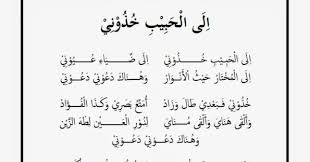 اِلَى الْحَبِيْبِ خُذُوْنِيْ
اِلَى الْحَبِيْبِ خُذُوْنِيْ اِلَى ضِيَاءِ عُيُوْنِيْ
اِلَى الْمُخْتَارِ حَيْثُ الْأَنْوَارِ وَهُنَاكَ دَعُوْنِيْ دَعُوْنِيْ
خُذُوْنِيْ فَبَعْدِيْ طَالَ وَزَادَ أُمَتِّعْ بَصَرِيْ وَكَذَا الْفُؤَادَ
وَأَلْقَى هَنَايَ وَأَلْقَى مُنَايَ لِنُوْرِ الْعَيْنِ لِطٰهَ الزَّيْنِ
وَهُنَاكَ دَعُوْنِيْ دَعُوْنِيْ